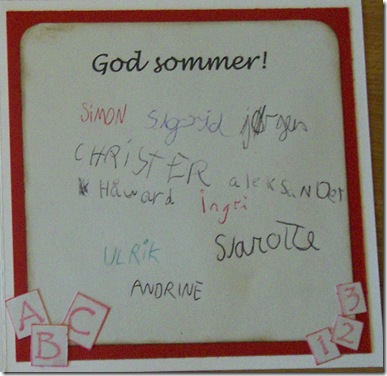 God sommer!
SiMON Sigrid jørgen
CHRISTER
Håvard aleKSaNDer
Ingri
SJarOTTe
ULRiK
ANDRINE
A C 3
B 1 2